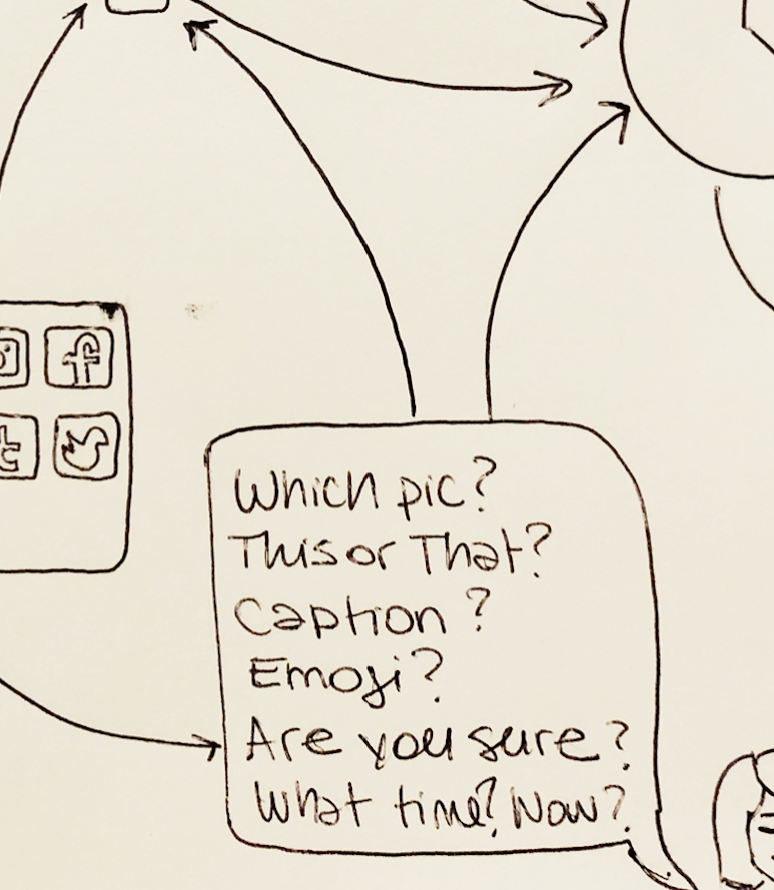 f
t
Which pic?
This or That?
Caption?
Emoji?
Are you sure?
What time? Now?